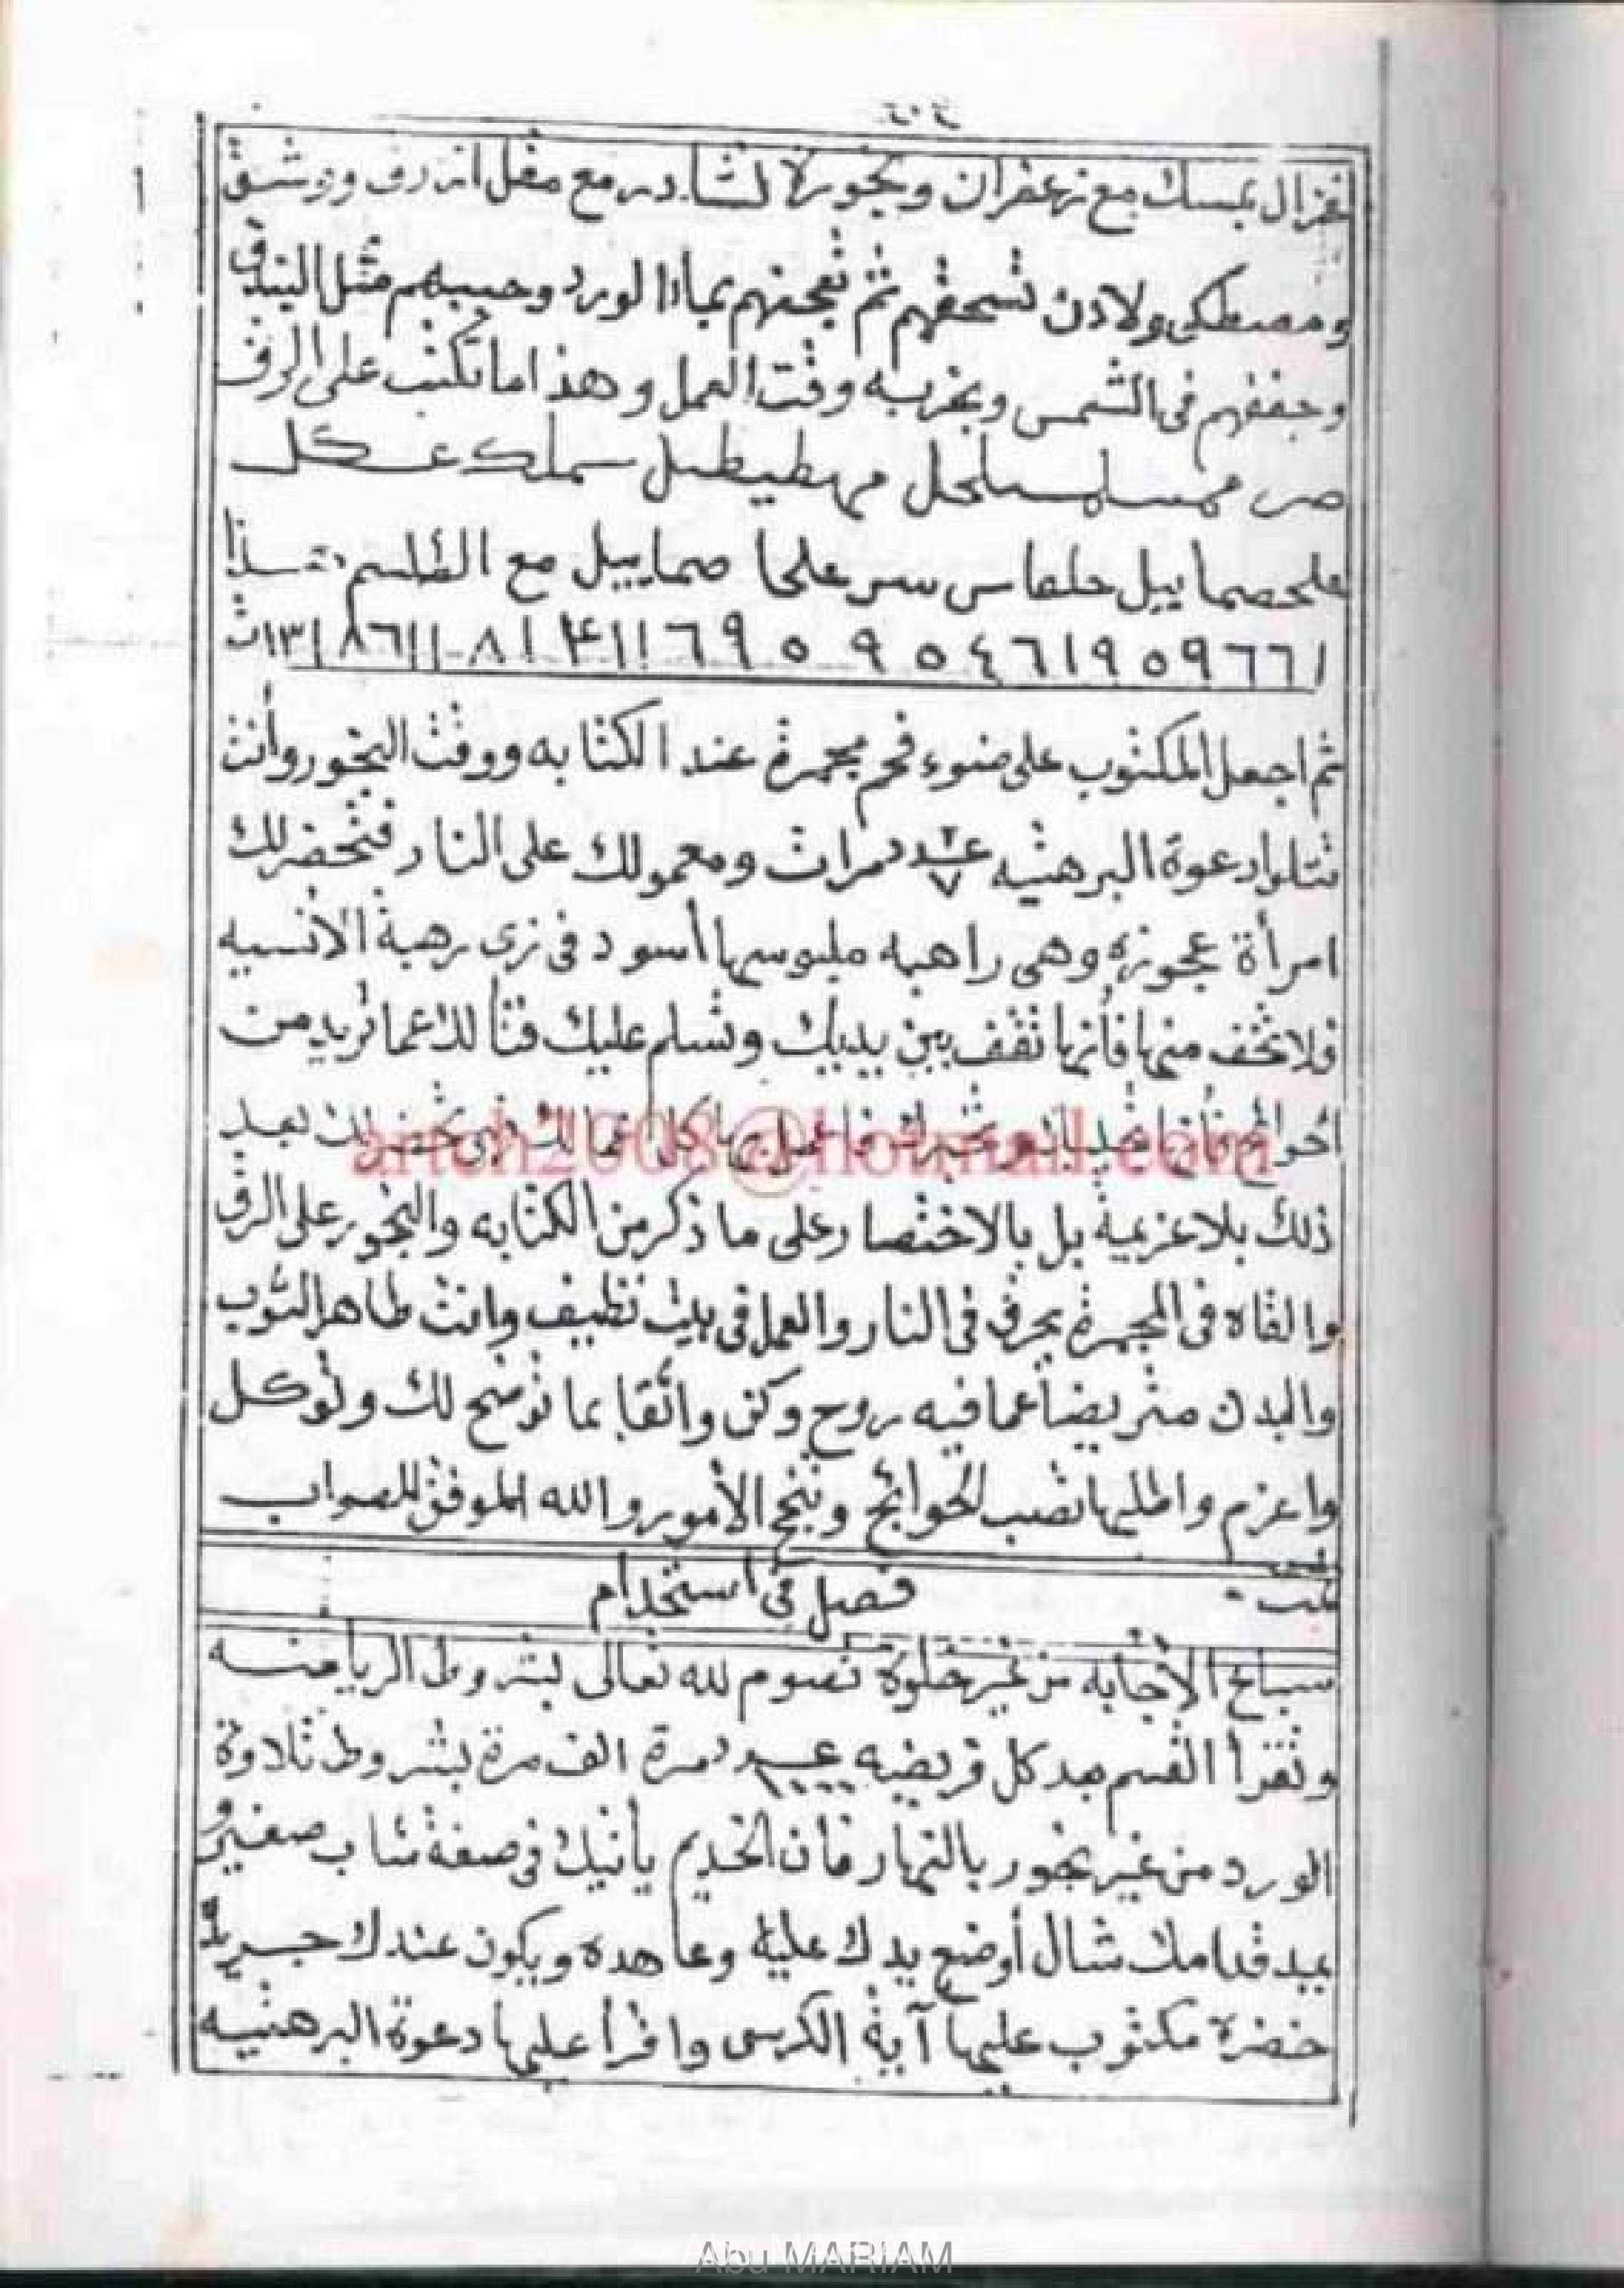 ٤٠٤
غزال بمسك مع زعفران وبخوره لشادر مع مقل ازرق ووشق
ومصطكى ولادن تسحقهم ثم تعجنهم بماء الورد وحببهم مثل البندق
وجففهم فى الشمس وبخر به وقت العمل وهذا ما تكتب على الرق
مهطيطيل سملك عكل
صماييل مع الطلسم
ثم اجعل المكتوب على ضوء فحم مجمرة عند الكتابه ووقت البخور وأنت
تتلوا دعوة البرهتيه عدد ٧ مرات ومعمولك على النار فتحضر لك
امرأة عجوزه وهى راهبه ملبوسها أسود فى زى رهبة الانسيه
فلا تخف منها فأنها تقف بين يديك وتسلم عليك فتألك عما تريد من
ذلك بلا عزيمة بل بالاختصار على ما ذكر من الكتابه والبخور على الرق
والقاه فى المجمرة يحرق فى النار والعمل فى بيت نظيف وانت طاهر الثوب
والبدن متريضاً عما فيه روح وكن واثقا بما توضح لك وتوكل
واعزم واطلبها تصب الحوائج وتنجح الأمور والله الموفق للصواب
تمت -
فصل فى استخدام
سباع الأجابه من غير خلوة تصوم لله تعالى بشروط الرياضه
وتقرأ القسم بعد كل فريضه عدد ١٠٠٠ مرة الف مرة بشروط تلاوة
الورد من غير بخور بالنهار فأن الخديم يأتيك فى صفة شاب صغير
يمد قدامك شال أوضع يدك عليه وعاهده ويكون عندك جريدة
خضرة مكتوب عليها آية الكرسى واقرأ عليها دعوة البرهتيه
artch2008@hotmail.com
Abu MARIAM